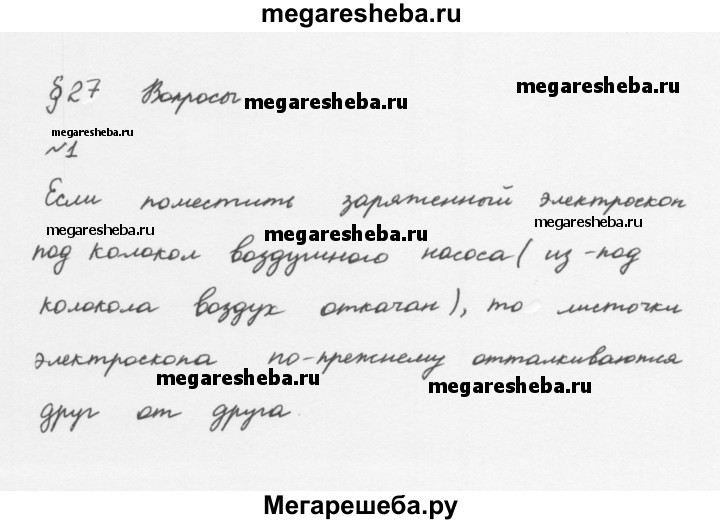 megaresheba.ru
§27 Вопросы
megaresheba.ru
megaresheba.ru
megaresheba.ru
№1
Если поместить заряженный электроскоп
megaresheba.ru
megaresheba.ru
megaresheba.ru
под колокол воздушного насоса (из-под
колокола воздух откачан), то листочки
электроскопа по-прежнему отталкиваются
megaresheba.ru
megaresheba.ru
друг от друга.
Мегарешеба.ру